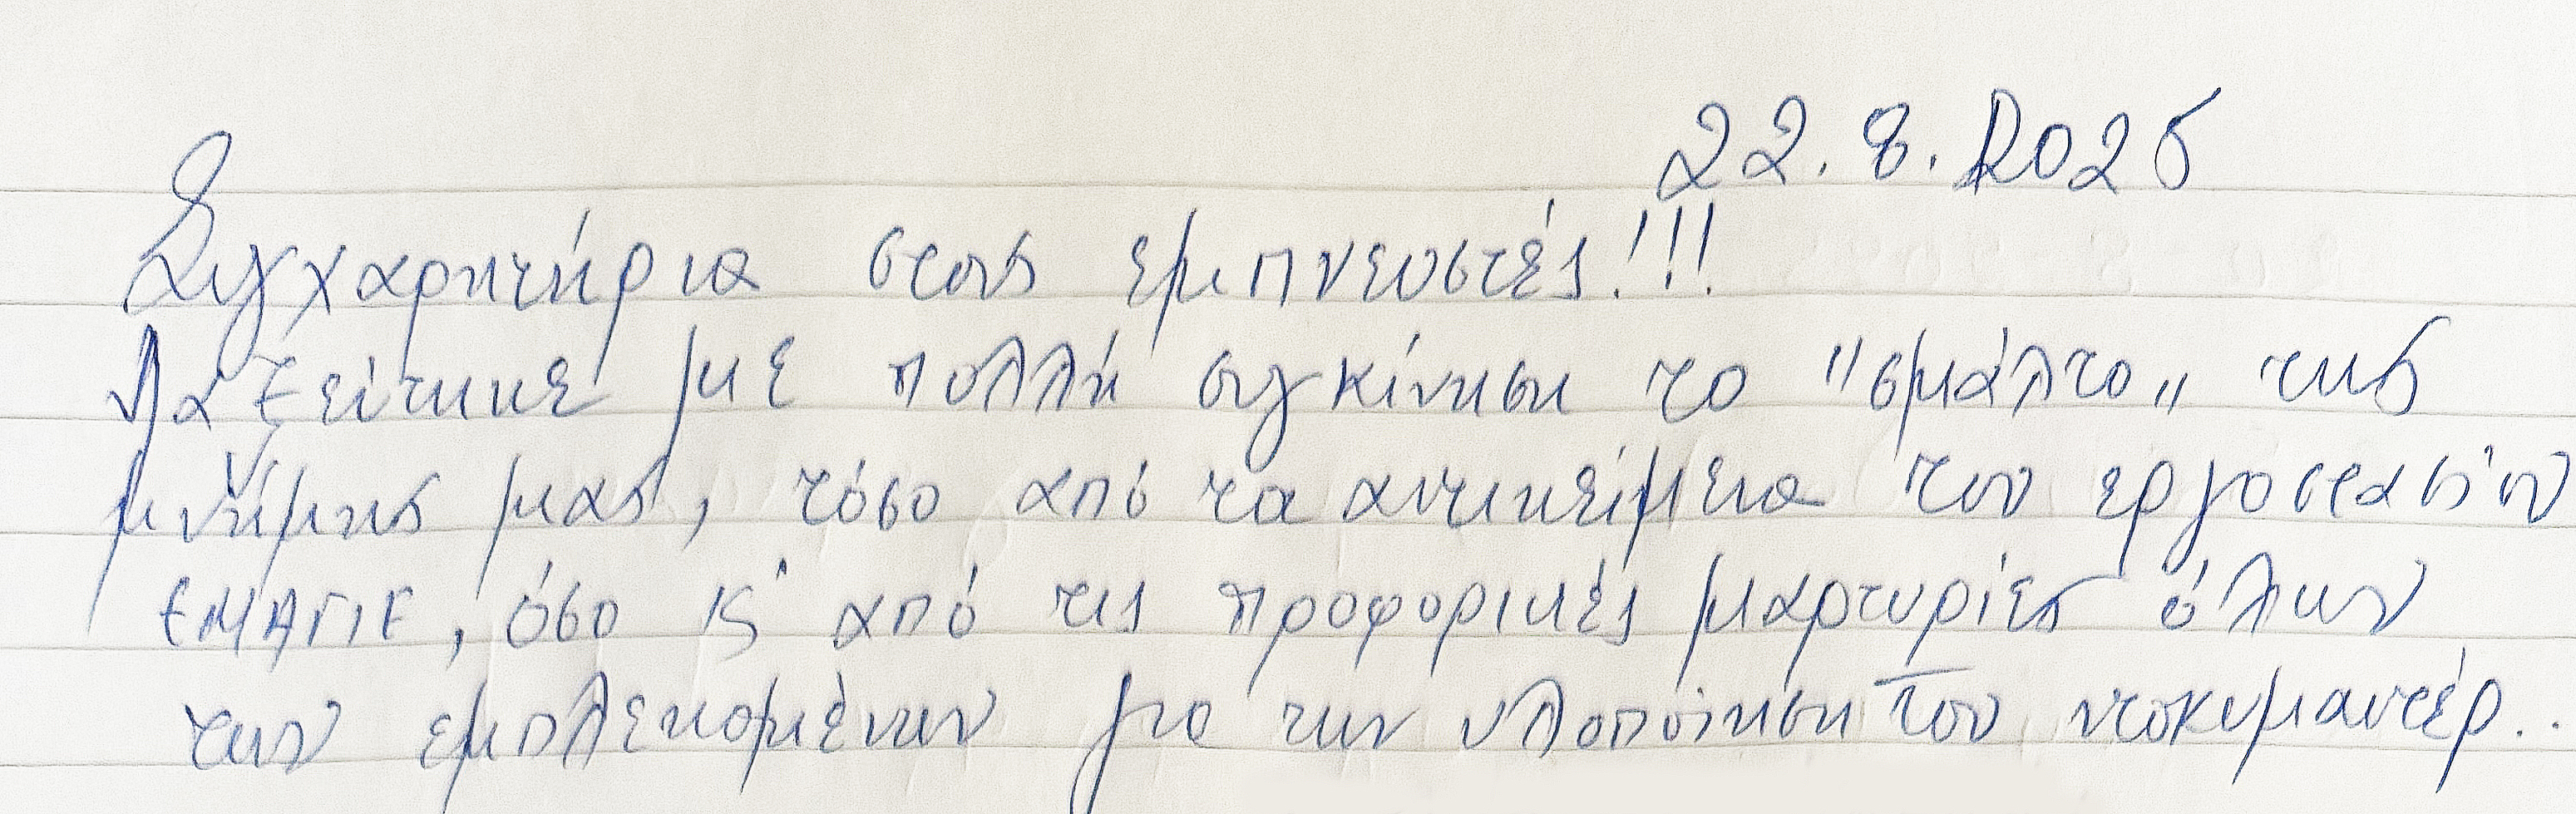 22.8.2025
Συγχαρητήρια στους εμπνευστές!!!
Διατείτηκε με πολλή συγκίνηση το "σμάλτο" της
μνήμης μας, τόσο από τα αντικείμενα του εργοστασίου
ΕΜΑΓΙΕ, όσο κ' από τις προφορικές μαρτυρίες όλων
των εμπλεκομένων για την υλοποίηση του ντοκυμαντέρ..